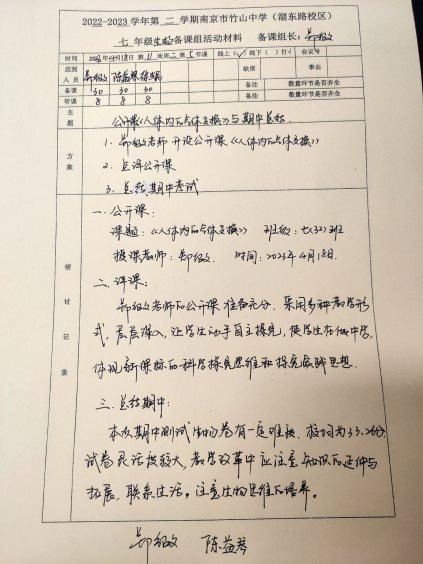 2022-2023学年第二学期南京市竹山中学（湖东路校区）
七年级生物备课组活动材料 备课组长：
时间 2023年4月18日第11周周二第5节课 线上（√）线下（ ）打√ 会议号
应到人员 陈益琴 缺席 事由
备课 30 30 30 备注 数量环节是否齐全
听课 8 8 8 备注 数量环节是否齐全
主题 公开课《人体内的气体交换》与期中总结
方案
1. 老师开设公开课《人体内的气体交换》
2. 点评公开课
3. 总结期中考试
研讨记录
一. 公开课：
课题：《人体内的气体交换》 班级：七(32)班
授课教师： 时间：2023年4月18日.
二. 评课：
老师的公开课准备充分，采用多种教学形
式，层层深入，让学生动手自主探究，使学生在做中学，
体现新课标的科学探究思维和探究实践思想.
三. 总结期中：
本次期中测试生物卷有一定难度，校均为33.26分
试卷灵活度较大，教学改革中应注意知识的延伸与
拓展，联系生活，注意生物思维的培养。
陈益琴